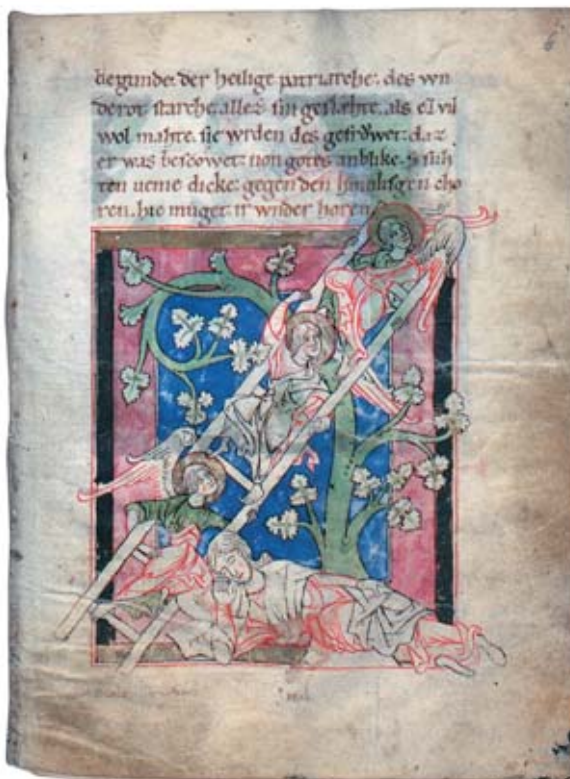 6
begunde. der heilige patriarche. des wn
derot starche. allez sin geslæhte. als ez vil
wol mahte. sie wrden des gefrowet: daz
er was bescowet: non gotes anblike.
ren dicke: gegen den himilisgen cho
ren. hie muget ir wnder horen